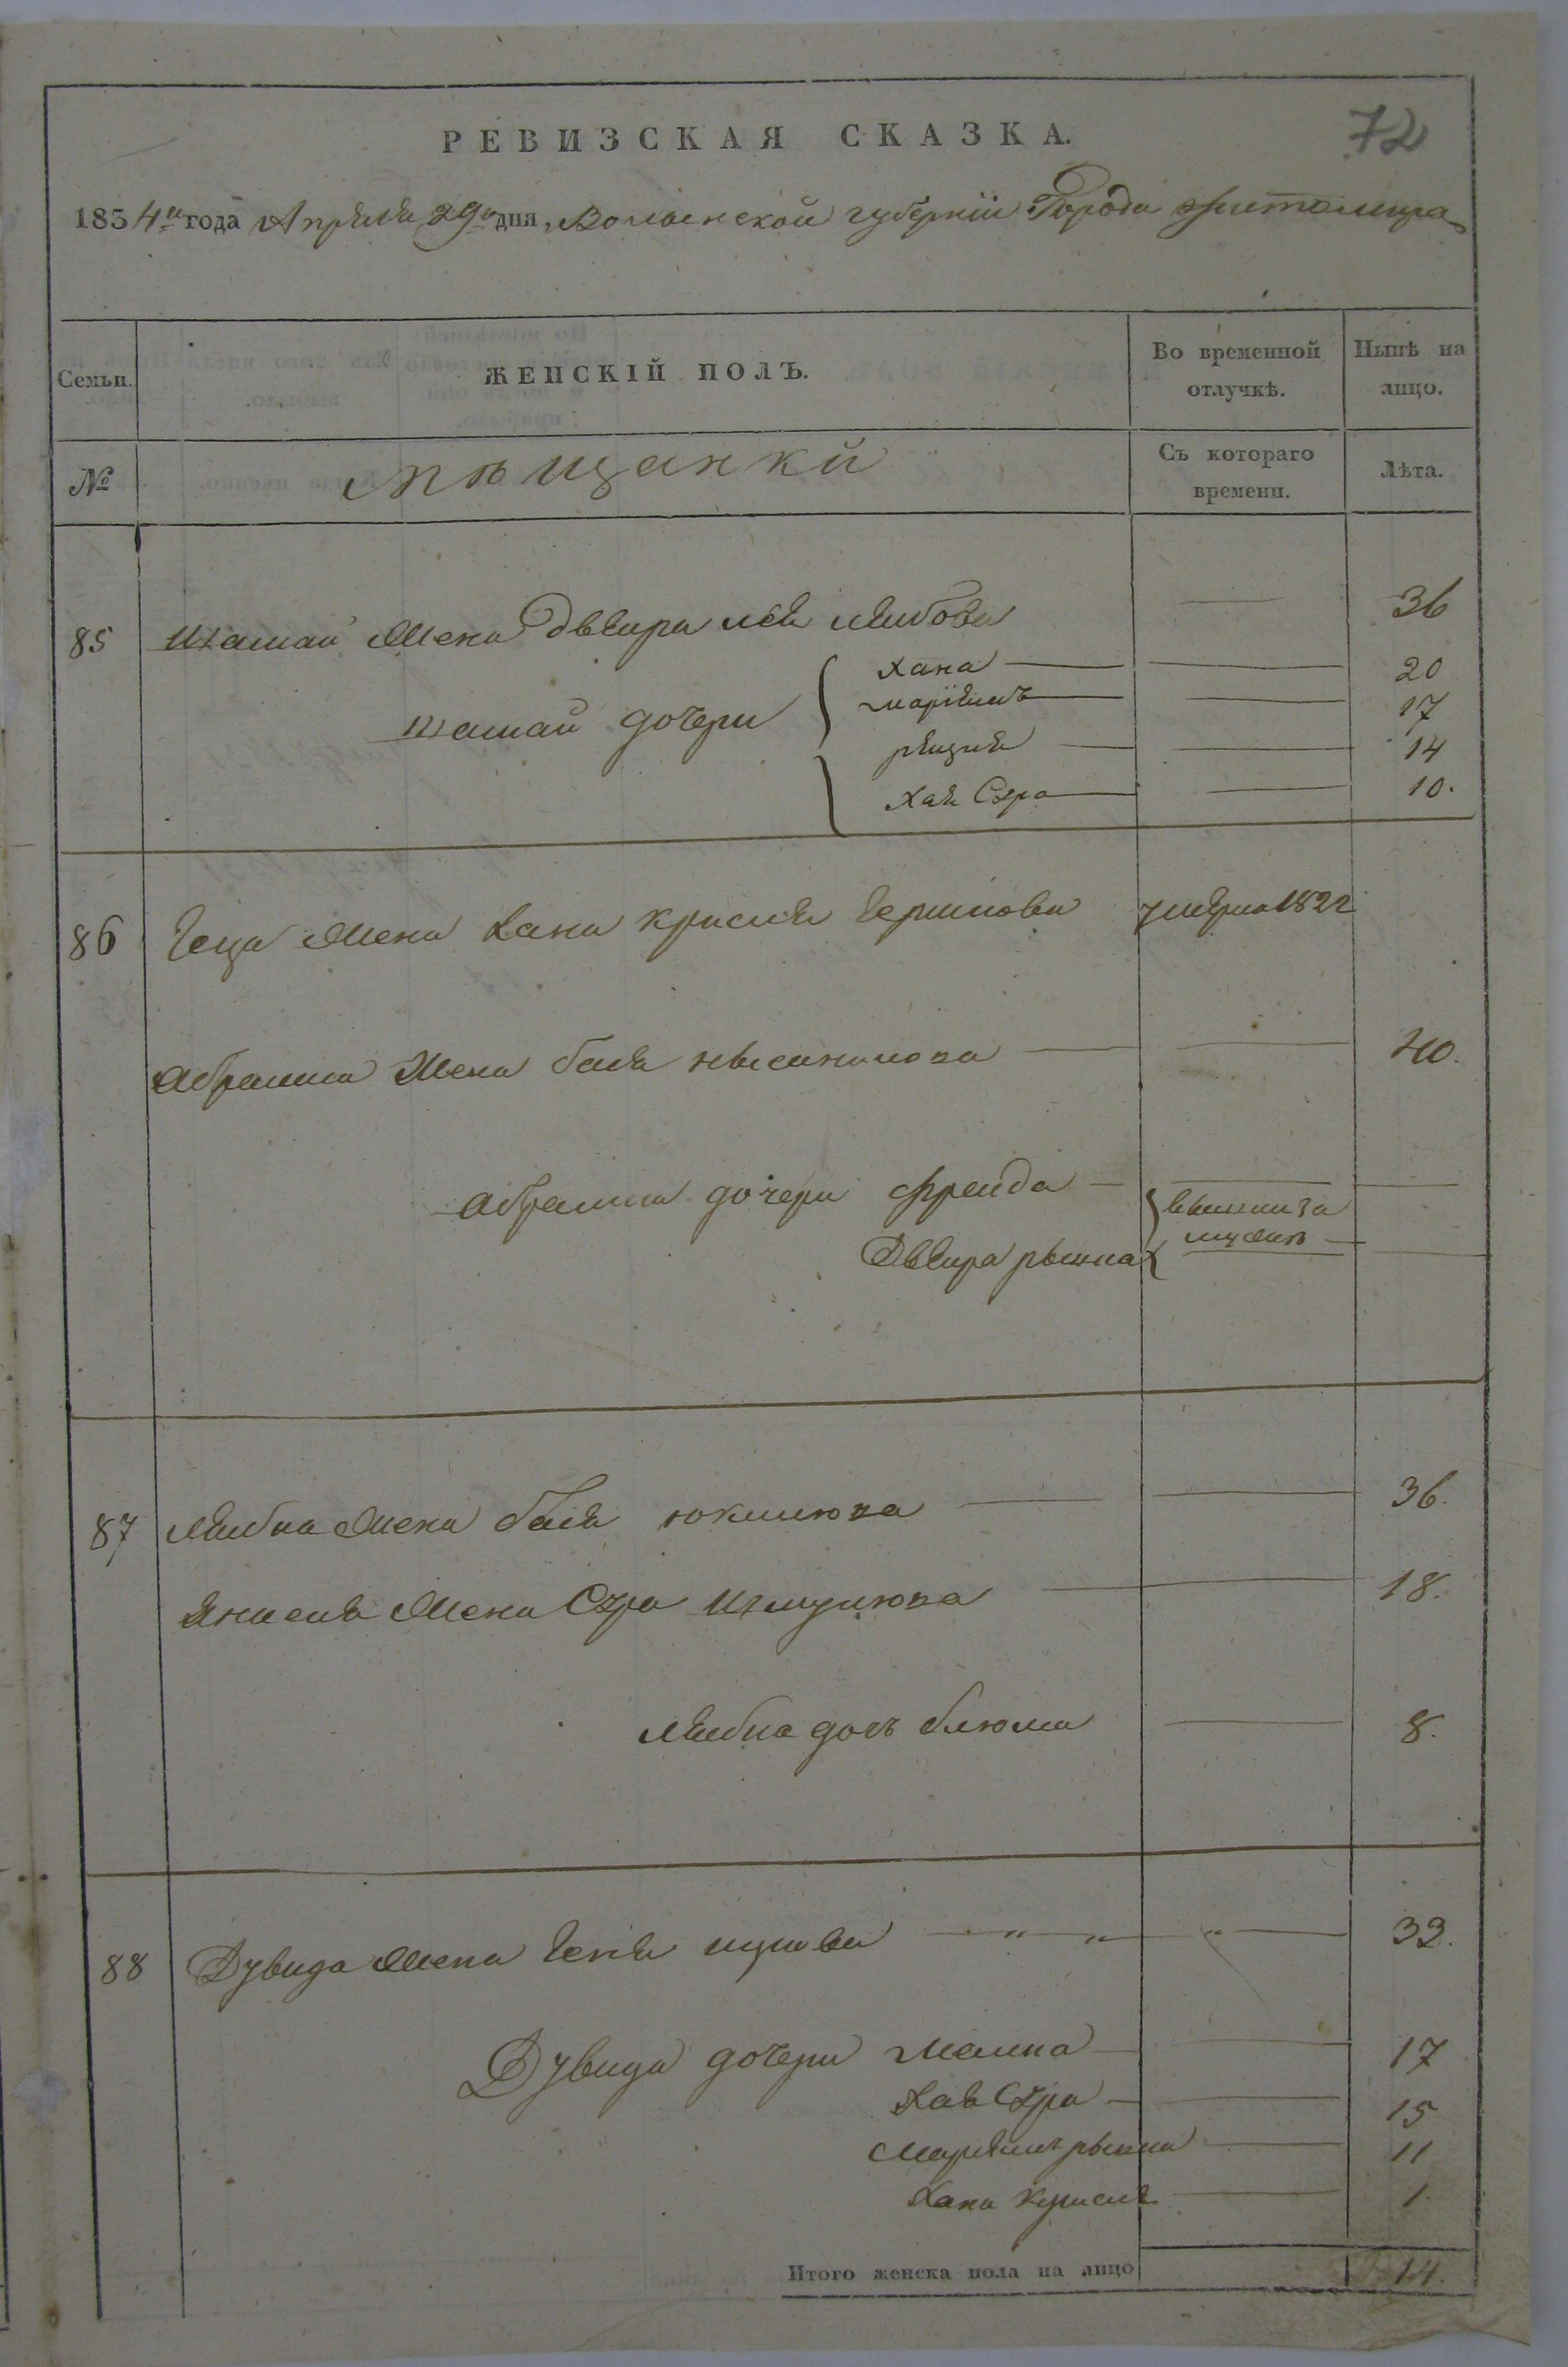 72
РЕВИЗСКАЯ СКАЗКА.
1834го года Апреля 29го дня, Волынской губерніи Города Житомира
Семьи. ЖЕНСКІЙ ПОЛЪ. Во временной отлучкѣ. Нынѣ на лицо.
№ Мѣщанки Съ котораго времени. Лѣта.
85 Шамай Жена Двейра лея лейбова 36
Шамай дочери Хана 20
маріемъ 17
рейзля 14
Хая Сура 10.
86 Геца Жена Хана крисля умерла 1822
Абрама Жена бася 40.
Абрама дочери Фрейда вышли за
Двейра рыкла мужъ
87 Лейбиа Жена бася 36.
Жена Сура Шмулюва 18.
Лейбиа дочь блюма 8.
88 Дувида Жена 33.
Дувида дочери Малка 17
Хая Сура 15
Маріемъ рыкла 11
Хана крисля 1
Итого женска пола на лицо 14.